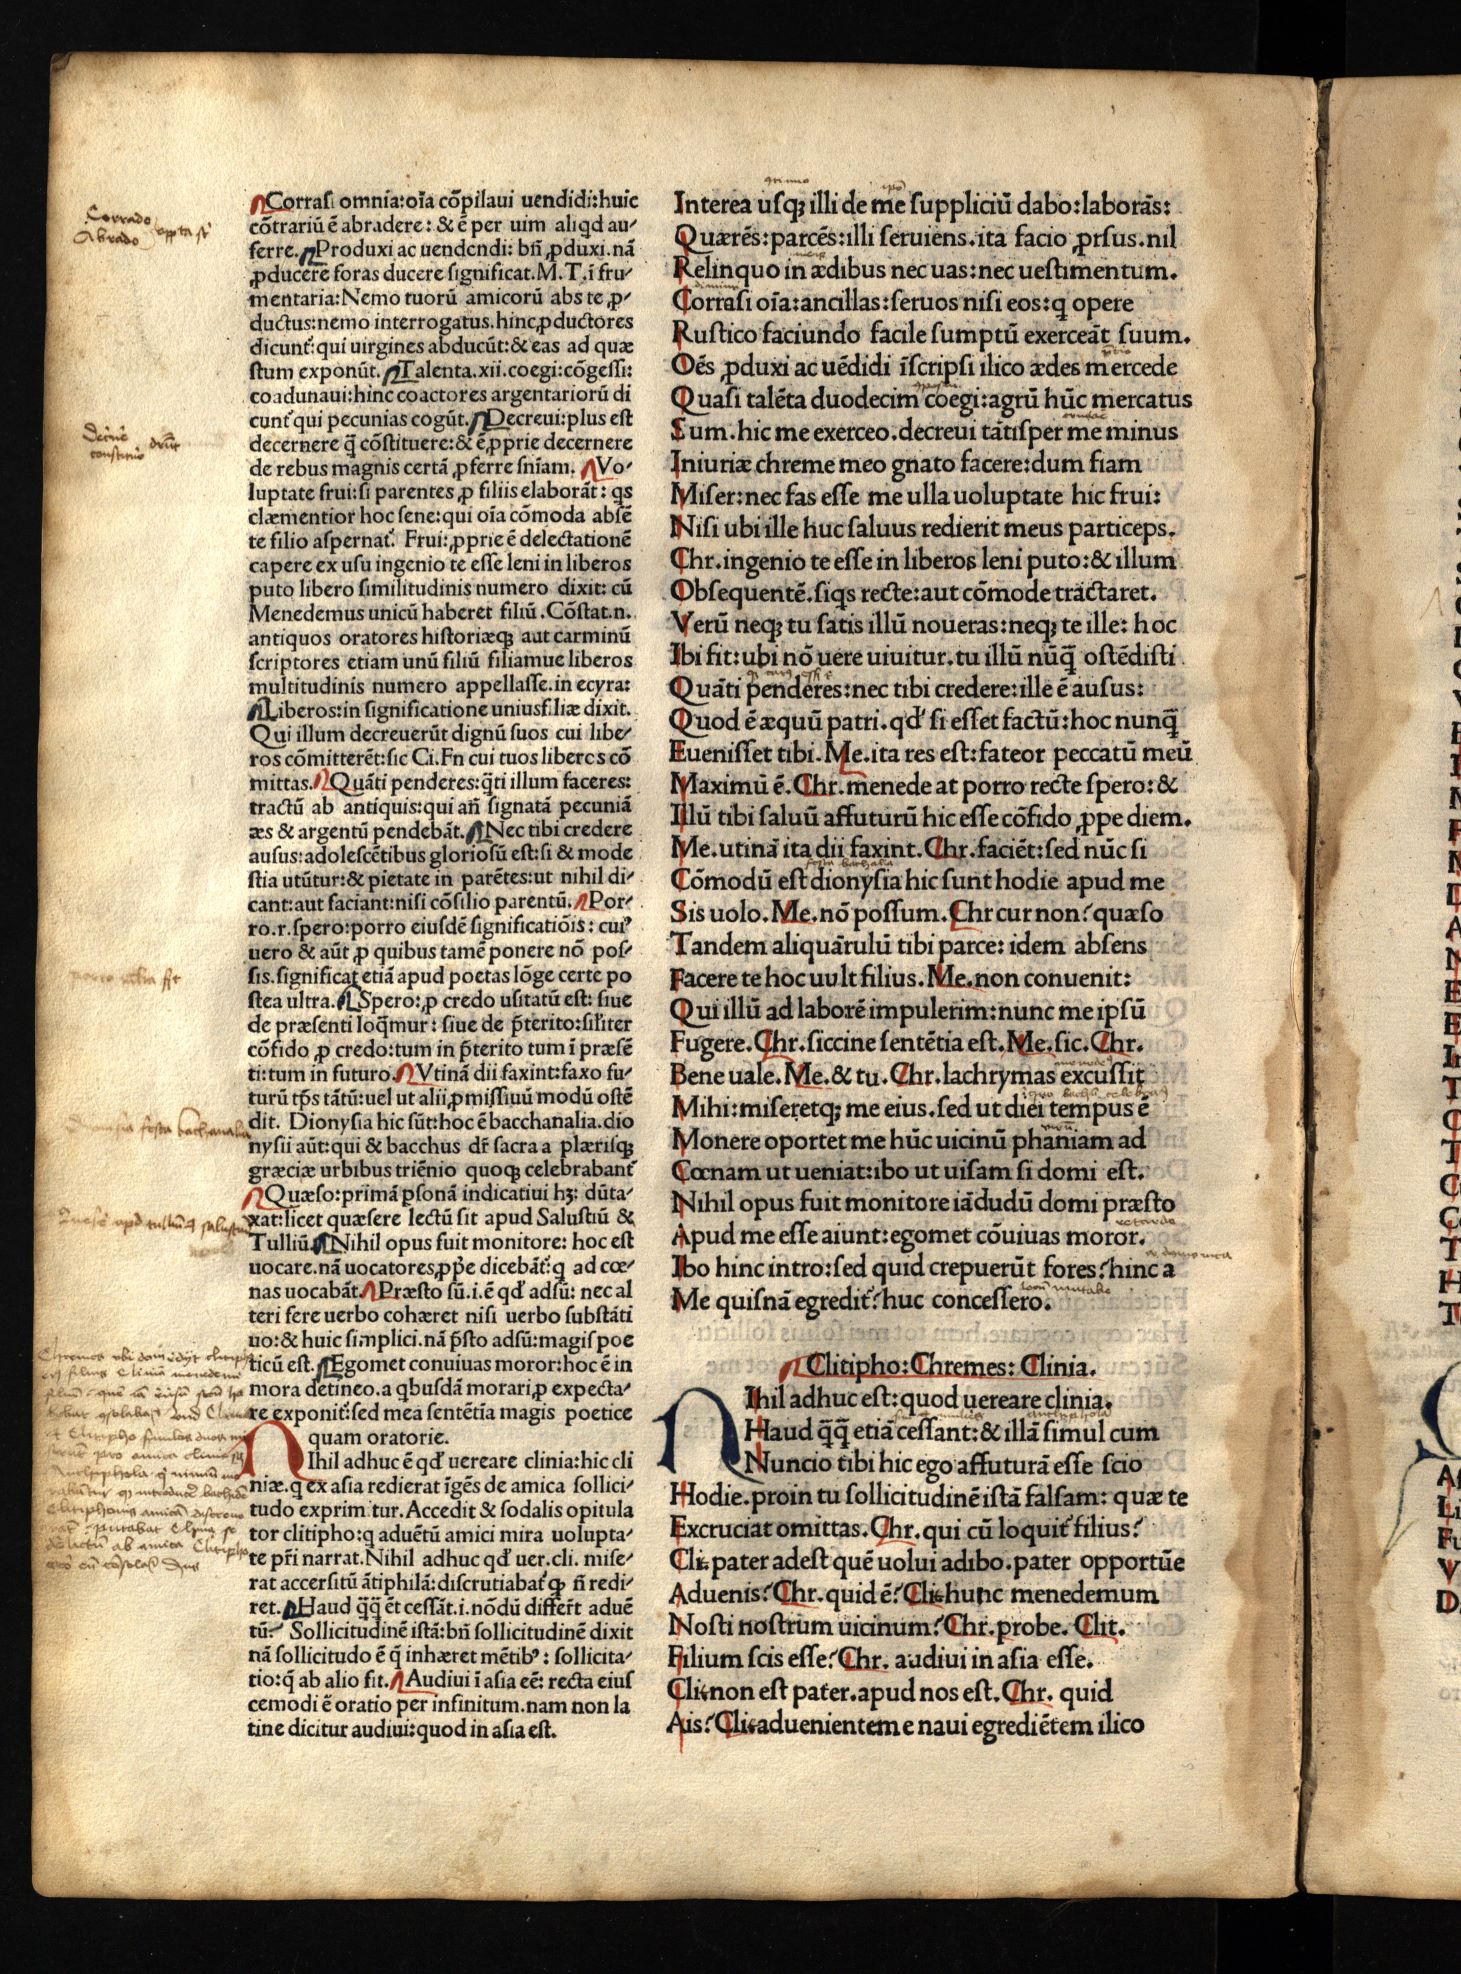 Corrasi omnia:oīa cōpilaui uendidi:huic
cōtrariū ē abradere: & ē per uim aliqd au-
ferre. Produxi ac uendendi: bn̄ ꝓduxi.nā
ꝓducere foras ducere significat.M.T.ī fru-
mentaria:Nemo tuorū amicorū abs te ꝓ-
ductus:nemo interrogatus.hinc ꝓductores
dicunt᷑:qui uirgines abducūt:& eas ad quæ
stum exponūt. Talenta.xii.coegi:cōgessi:
coadunaui:hinc coactores argentariorū di
cunt᷑ qui pecunias cogūt. Decreui:plus est
decernere q̄ cōstituere:& ē ꝓprie decernere
de rebus magnis certā ꝓferre snīam. Vo-
luptate frui:si parentes ꝓ filiis elaborāt: qs
clæmentior hoc sene:qui oīa cōmoda absē
te filio aspernat᷑. Frui:ꝓprie ē delectationē
capere ex usu ingenio te esse leni in liberos
puto libero similitudinis numero dixit: cū
Menedemus unicū haberet filiū.Cōstat.n.
antiquos oratores historiæqꝫ aut carminū
scriptores etiam unū filiū filiamue liberos
multitudinis numero appellasse.in ecyra:
Liberos:in significatione unius filiæ dixit.
Qui illum decreuerūt dignū suos cui libe-
ros cōmitterēt:sic Ci.Fn cui tuos liberos cō
mittas. Quāti penderes:q̄ti illum faceres:
tractū ab antiquis:qui an̄ signatā pecuniā
æs & argentū pendebāt. Nec tibi credere
ausus:adolescētibus gloriosū est:si & mode
stia utūtur:& pietate in parētes:ut nihil di-
cant:aut faciant:nisi cōsilio parentū. Por-
ro.r.spero:porro eiusdē significatiōis: cui᷒
uero & aūt ꝓ quibus tamē ponere nō pos-
sis.significat etiā apud poetas lōge certe po
stea ultra. Spero:ꝓ credo usitatū est: siue
de præsenti loq̄mur: siue de p̄terito:sil̄iter
cōfido ꝓ credo:tum in p̄terito tum ī præsē
ti:tum in futuro. Vtinā dii faxint:faxo fu-
turū tp̄s tātū:uel ut alii ꝓmissiuū modū ostē
dit. Dionysia hic sūt:hoc ē bacchanalia.dio
nysii aūt:qui & bacchus dr̄ sacra a plærisqꝫ
græciæ urbibus triēnio quoqꝫ celebrabant᷑
Quæso:primā ꝑsonā indicatiui hꝫ: dūta-
xat:licet quæsere lectū sit apud Salustiū &
Tulliū. Nihil opus fuit monitore: hoc est
uocare.nā uocatores ꝓpe dicebāt᷑:q ad cœ-
nas uocabāt. Præsto sū.i.ē qd' adsū: nec al
teri fere uerbo cohæret nisi uerbo substāti
uo:& huic simplici.nā p̄sto adsū:magis poe
ticū est. Egomet conuiuas moror:hoc ē in
mora detineo.a qbusdā morari ꝓ expecta-
re exponit᷑:sed mea sentētia magis poetice
quam oratorie.
NIhil adhuc ē qd' uereare clinia:hic cli
niæ.q ex asia redierat īgēs de amica sollici-
tudo exprim tur.Accedit & sodalis opitula
tor clitipho:q aduētū amici mira uolupta-
te pr̄i narrat.Nihil adhuc qd' uer.cli. mise-
rat accersitū ātiphilā:discrutiabat᷑ ꝙ n̄ redi-
ret. Haud q̄q̄ ēt cessāt.i.nōdū differt̄ aduē
tū. Sollicitudinē istā:bn̄ sollicitudinē dixit
nā sollicitudo ē q̄ inhæret mētib᷒: sollicita-
tio:q̄ ab alio fit. Audiui ī asia eē: recta eius
cemodi ē oratio per infinitum.nam non la
tine dicitur audiui:quod in asia est.
Interea usqꝫ illi de me suppliciū dabo:laborās:
Quærēs:parcēs:illi seruiens.ita facio ꝓrsus.nil
Relinquo in ædibus nec uas:nec uestimentum.
Corrasi oīa:ancillas:seruos nisi eos:q opere
Rustico faciundo facile sumptū exerceāt suum.
Oēs ꝓduxi ac uēdidi īscripsi ilico ædes mercede
Quasi talēta duodecim coegi:agrū hūc mercatus
Sum.hic me exerceo.decreui tātisper me minus
Iniuriæ chreme meo gnato facere:dum fiam
Miser:nec fas esse me ulla uoluptate hic frui:
Nisi ubi ille huc saluus redierit meus particeps.
Chr.ingenio te esse in liberos leni puto:& illum
Obsequentē.siqs recte:aut cōmode tractaret.
Verū neqꝫ tu satis illū noueras:neqꝫ te ille: hoc
Ibi fit:ubi nō uere uiuitur.tu illū nūq̄ ostēdisti
Quāti penderes:nec tibi credere:ille ē ausus:
Quod ē æquū patri.qd' si esset factū:hoc nunq̄
Euenisset tibi.Me.ita res est:fateor peccatū meū
Maximū ē.Chr.menede at porro recte spero:&
Illū tibi saluū affuturū hic esse cōfido ꝓpe diem.
Me.utinā ita dii faxint.Chr.faciēt:sed nūc si
Cōmodū est dionysia hic sunt hodie apud me
Sis uolo.Me.nō possum.Chr cur non?quæso
Tandem aliquātulū tibi parce: idem absens
Facere te hoc uult filius.Me.non conuenit:
Qui illū ad laborē impulerim:nunc me ipsū
Fugere.Chr.siccine sentētia est.Me.sic.Chr.
Bene uale.Me.& tu.Chr.lachrymas excussit
Mihi:miseretqꝫ me eius.sed ut diei tempus ē
Monere oportet me hūc uicinū phaniam ad
Cœnam ut ueniat:ibo ut uisam si domi est.
Nihil opus fuit monitore iādudū domi præsto
Apud me esse aiunt:egomet cōuiuas moror.
Ibo hinc intro:sed quid crepuerūt fores?hinc a
Me quisnā egredit᷑?huc concessero.
Clitipho:Chremes: Clinia.
NIhil adhuc est:quod uereare clinia.
Haud q̄q̄ etiā cessant:& illā simul cum
Nuncio tibi hic ego affuturā esse scio
Hodie.proin tu sollicitudinē istā falsam: quæ te
Excruciat omittas.Chr.qui cū loquit᷑ filius?
Cli.pater adest quē uolui adibo.pater opportūe
Aduenis?Chr.quid ē?Cli.hunc menedemum
Nosti nostrum uicinum?Chr.probe. Clit.
Filium scis esse?Chr. audiui in asia esse.
Cli.non est pater.apud nos est.Chr. quid
Ais?Cli.aduenientem e naui egrediētem ilico
Corrado
Abrado